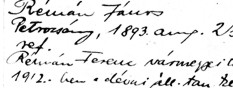 Rémán János
Petrozsény, 1893. aug. 2
ref.
Rémán Ferenc vármegyei
1912. ben a dévai áll. tan.